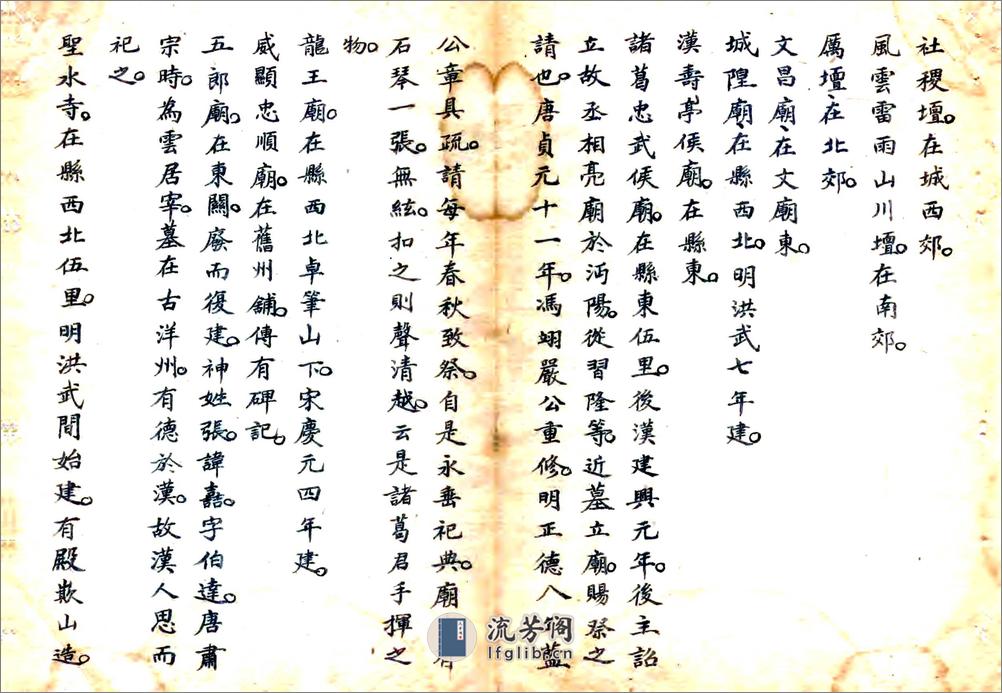 社稷壇。在城西郊。
風雲雷雨山川壇。在南郊。
厲壇、在北郊。
文昌廟、在文廟東。
城隍廟、在縣西北。明洪武七年建。
漢壽亭侯廟。在縣東。
諸葛忠武侯廟。在縣東伍里。後漢建興元年。後主詔
立故丞相亮廟於沔陽。從習隆等。近墓立廟。賜祭之
請也。唐貞元十一年。馮翊嚴公重修。明正德八 藍
公章具疏。請每年春秋致祭。自是永垂祀典。廟
石琴一張。無絃。扣之則聲清越。云是諸葛君手揮之
物。
龍王廟。在縣西北卓筆山下。宋慶元四年建。
威顯忠順廟。在舊州舖。傳有碑記。
五郎廟。在東關。廢而復建。神姓張。諱嘉。字伯達。唐肅
宗時。為雲居宰。墓在古洋州。有德於漢。故漢人思而
祀之。
聖水寺。在縣西北伍里。明洪武間始建。有殿欺山造。
流芳阁
lfglib.cn